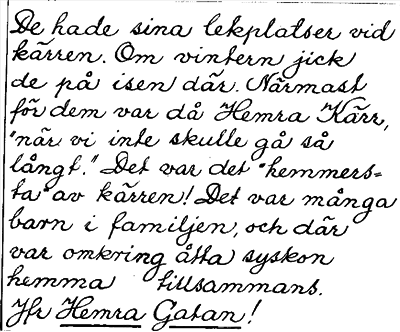 De hade sina lekplatser vid
kärren. Om vintern jick
de på isen där. Närmast
för dem var då Hemra Kärr,
"när vi inte skulle gå så
långt." Det var det "hemmers=
ta" av kärren! Det var många
barn i familjen, och där
var omkring åtta syskon
hemma tillsammans.
Jfr Hemra Gatan!